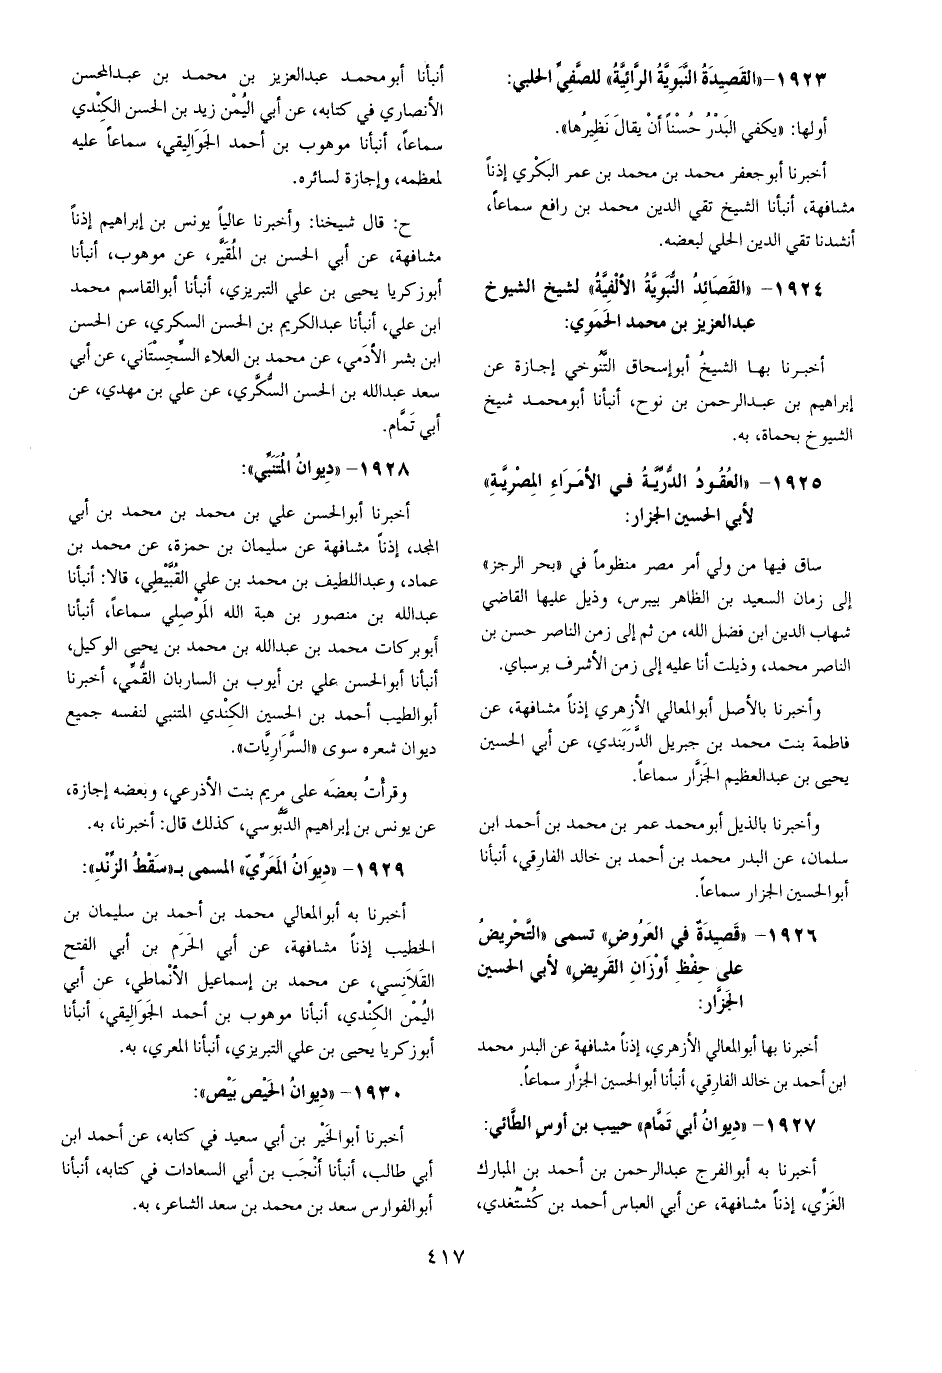 ١٩٢٣-«القَصِيدَةُ النَّبَوِيَّةُ الرَّائِيَّةُ» للصَّفِيِّ الحلبي:
أولها: «يكفي البَدْرُ حُسْناً أنْ يقالَ نَظِيرُها».
أخبرنا أبوجعفر محمد بن محمد بن عمر البَكْري إذناً
مشافهة، أنبأنا الشيخ تقي الدين محمد بن رافع سماعاً،
أنشدنا تقي الدين الحلي لبعضه.
١٩٢٤- «القَصَائِدُ النُّبَوِيَّةُ الألْفِيَّةُ» لشيخ الشيوخ
عبدالعزيز بن محمد الحَمَوي:
أخبرنا بها الشيخُ أبوإسحاق التَّنُوخي إجازة عن
إبراهيم بن عبدالرحمن بن نوح، أنبأنا أبومحمد شيخ
الشيوخ بحماة، به.
١٩٢٥- «العُقُودُ الدُّرِّيَّةُ في الأمَرَاءِ المِصْرِيَّةِ»
لأبي الحسين الجزار:
ساق فيها من ولي أمر مصر منظوماً في «بحر الرجز»
إلى زمان السعيد بن الظاهر بيبرس، وذيل عليها القاضي
شهاب الدين ابن فضل الله، من ثم إلى زمن الناصر حسن بن
الناصر محمد، وذيلت أنا عليه إلى زمن الأشرف برسباي.
وأخبرنا بالأصل أبوالمعالي الأزهري إذناً مشافهة، عن
فاطمة بنت محمد بن جبريل الدَّرَبَندي، عن أبي الحسين
يحيى بن عبدالعظيم الجَزَّار سماعاً.
وأخبرنا بالذيل أبومحمد عمر بن محمد بن أحمد ابن
سلمان، عن البدر محمد بن أحمد بن خالد الفارقي، أنبأنا
أبوالحسين الجزار سماعاً.
١٩٢٦- «قَصِيدَةٌ في العَرُوضِ» تسمى «التَّحْرِيضُ
على حِفْظِ أوْزَانِ القَرِيضِ» لأبي الحسين
الجَزَّار:
أخبرنا بها أبوالمعالي الأزهري، إذناً مشافهة عن البدر محمد
ابن أحمد بن خالد الفارقي، أنبأنا أبوالحسين الجزَّار سماعاً.
١٩٢٧- «ديوانُ أبي تَمَّام» حبيب بن أوس الطَّائي:
أخبرنا به أبوالفرج عبدالرحمن بن أحمد بن المبارك
الغَزِّي، إذناً مشافهة، عن أبي العباس أحمد بن كُشْتُغدي،
أنبأنا أبومحمد عبدالعزيز بن محمد بن عبدالمحسن
الأنصاري في كتابه، عن أبي اليُمْن زيد بن الحسن الكِنْدي
سماعاً، أنبأنا موهوب بن أحمد الجَوَالِيقي، سماعاً عليه
لمعظمه، وإجازة لسائره.
ح: قال شيخنا: وأخبرنا عالياً يونس بن إبراهيم إذناً
مشافهة، عن أبي الحسن بن المُقَيَّر، عن موهوب، أنبأنا
أبوزكريا يحيى بن علي التبريزي، أنبأنا أبوالقاسم محمد
ابن علي، أنبأنا عبدالكريم بن الحسن السكري، عن الحسن
ابن بشر الأدَمي، عن محمد بن العلاء السِّجِسْتَاني، عن أبي
سعد عبدالله بن الحسن السُّكَّري، عن علي بن مهدي، عن
أبي تَمَّام.
١٩٢٨- «ديوانُ المُتَنَبِّي»:
أخبرنا أبوالحسن علي بن محمد بن محمد بن أبي
المجد، إذناً مشافهة عن سليمان بن حمزة، عن محمد بن
عماد، وعبداللطيف بن محمد بن علي القُبَّيْطِي، قالا: أنبأنا
عبدالله بن منصور بن هبة الله المَوْصِلي سماعاً، أنبأنا
أبوبركات محمد بن عبدالله بن محمد بن يحيى الوكيل،
أنبأنا أبوالحسن علي بن أيوب بن الساربان القُمِّي، أخبرنا
أبوالطيب أحمد بن الحسين الكِنْدي المتنبي لنفسه جميع
ديوان شعره سوى «السَّرَارِيَّات».
وقرأتُ بعضَه على مريم بنت الأذرعي، وبعضه إجازة،
عن يونس بن إبراهيم الدَّبُّوسي، كذلك قال: أخبرنا، به.
١٩٢٩- «ديوَانُ المَعَرِّيّ» المسمى بـ«سَقْطُ الزَّنْدِ»:
أخبرنا به أبوالمعالي محمد بن أحمد بن سليمان بن
الخطيب إذناً مشافهة، عن أبي الحَرَم بن أبي الفتح
القَلَانِسي، عن محمد بن إسماعيل الأنْماطي، عن أبي
اليُمْن الكِنْدي، أنبأنا موهوب بن أحمد الجَوَاليقي، أنبأنا
أبوزكريا يحيى بن علي التبريزي، أنبأنا المعري، به.
١٩٣٠- «ديوانُ الحَيْص بَيْص»:
أخبرنا أبوالخَيْر بن أبي سعيد في كتابه، عن أحمد ابن
أبي طالب، أنبأنا أنْجَب بن أبي السعادات في كتابه، أنبأنا
أبوالفوارس سعد بن محمد بن سعد الشاعر، به.
٤١٧